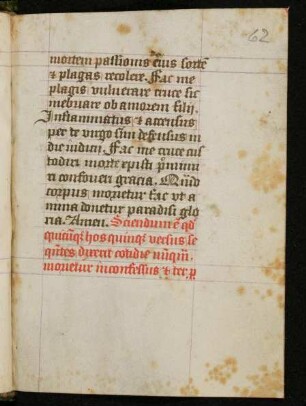 62
mortem passionis eius sorte͞
& plagas recoler. Fac me
plagis vulnerare cruce hic
inebriare ob amorem filij.
Inflammatus & accensus
per te virgo sim defensus in
die iudicij. Fac me cruce cus
todiri morte cristi p̄muni
ri confoueri gracia. Qn̄
corpus morietur fac vt a
nima donetur paradisi glo
ria. Amen. Sciendum ē qd
quicūqȝ hos quinqȝ versus se
qn̄tes dixerit cotidie nūqm̄
morietur inconfessus &